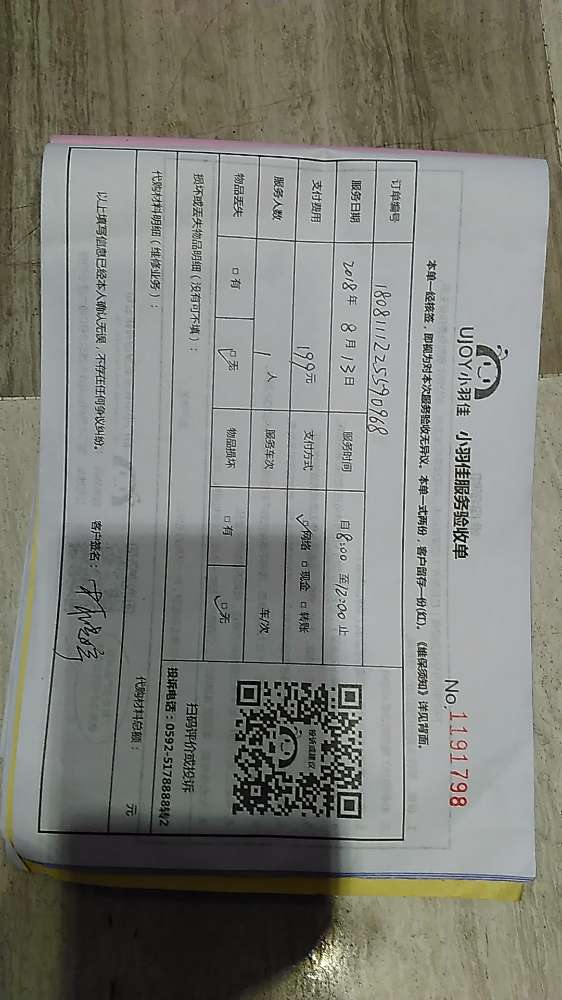 UJOY小羽佳 小羽佳服务验收单
No.1191798
本单一经核签，即视为对本次服务验收无异议。本单一式两份，客户留存一份(红)，《维保须知》详见背面。
订单编号
服务日期 2018年8月13日 服务时间 自8:00至12:00止
支付费用 199元 支付方式 ☑网络 □现金 □转账
服务人数 1人 服务车次 车/次
物品丢失 □有 ☑无 物品损坏 □有 ☑无
损坏或丢失物品明细（没有可不填）：
投诉或建议
扫码评价或投诉
投诉电话：0592-5178888转2
代购材料明细（维修业务）：
代购材料总额： 元
以上填写信息已经本人确认无误，不存在任何争议纠纷。
客户签名：